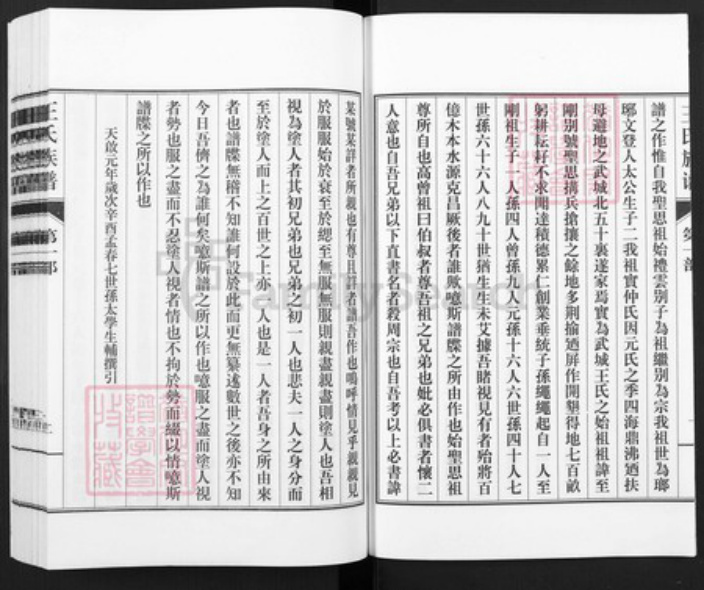 王氏族譜
第一部
譜之作惟自我聖思祖始禮雲別子為祖繼別為宗我祖世為瑯
琊文登人太公生子二我祖實仲氏因元氏之季四海鼎沸迺扶
母避地之武城北五十裏遂家焉實為武城王氏之始祖祖諱至
剛別號聖思搆兵搶攘之餘地多荆揄迺屏作開墾得地七百畝
躬耕耘耔不求聞達積德累仁創業垂統子孫繩繩起自一人至
剛祖生子一人孫四人曾孫九人元孫十六人六世孫四十人七
世孫六十六人八九十世猶生生未艾據吾睹視見有者殆將百
億木本水源克昌厥後者誰歟噫斯譜牒之所由作也始聖思祖
尊所自也高曾祖曰伯叔者尊吾祖之兄弟也妣必俱書者懷二
人意也自吾兄弟以下直書名者殺周宗也自吾考以上必書諱
某號某詳者所親也有尊且詳者譜吾作也嗚呼情見乎親親見
於服服始於衰至於緦至無服無服則親盡親盡則塗人也吾相
視為塗人者其初兄弟也兄弟之初一人也悲夫一人之身分而
至於塗人而上之百世之上亦一人也是一人者吾身之所由來
者也譜牒無稽不知誰何設於此而更無纂述數世之後亦不知
今日吾儕之為誰何矣噫斯譜之所以作也噫服之盡而塗人視
者勢也服之盡而不忍塗人視者情也不拘於勢而綴以情噫斯
譜牒之所以作也
天啟元年歲次辛酉孟春七世孫太學生輔撰引
王氏族譜
第一部
FamilySearch
譜學會
收藏